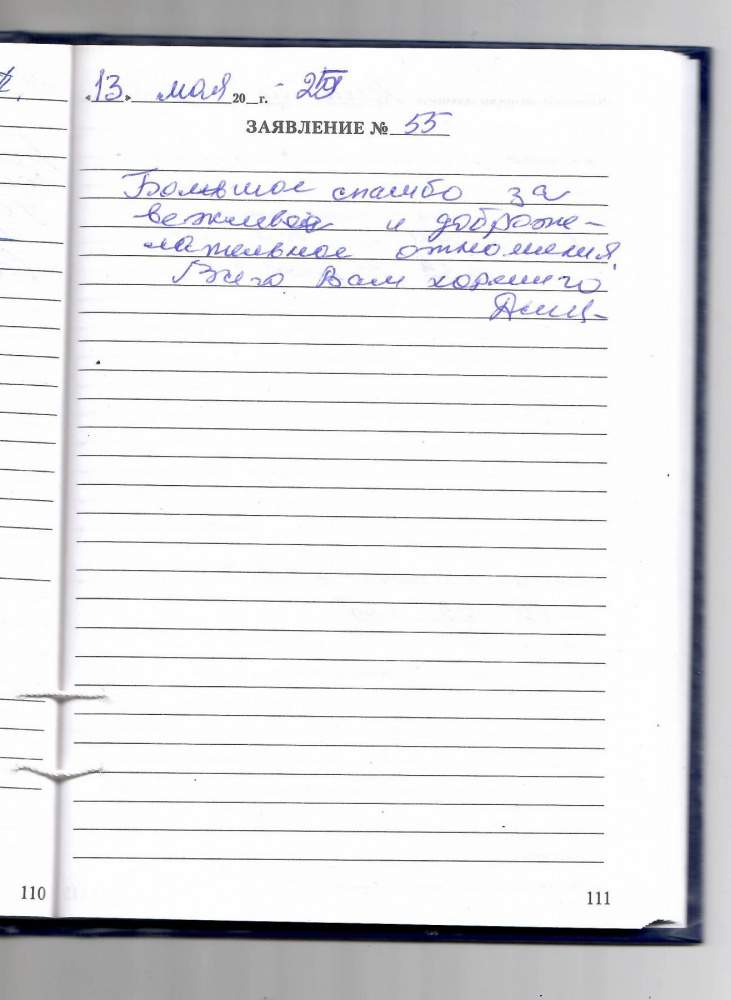 «13» мая 20__г.
ЗАЯВЛЕНИЕ № 55
Большое спасибо за
вежливое и доброже-
лательное отношения.
Всего Вам хорошего
110
111